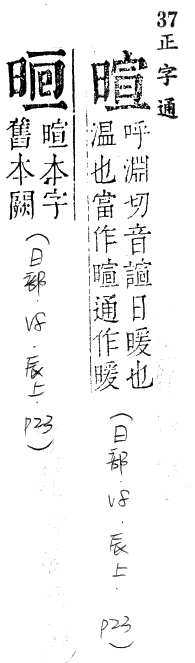 37正字通
暄
呼淵切音諠日暖也
温也當作暄通作暖
(日部.V8.辰上.P23)
暄本字
舊本闕
(日部.V8.辰上.P23)